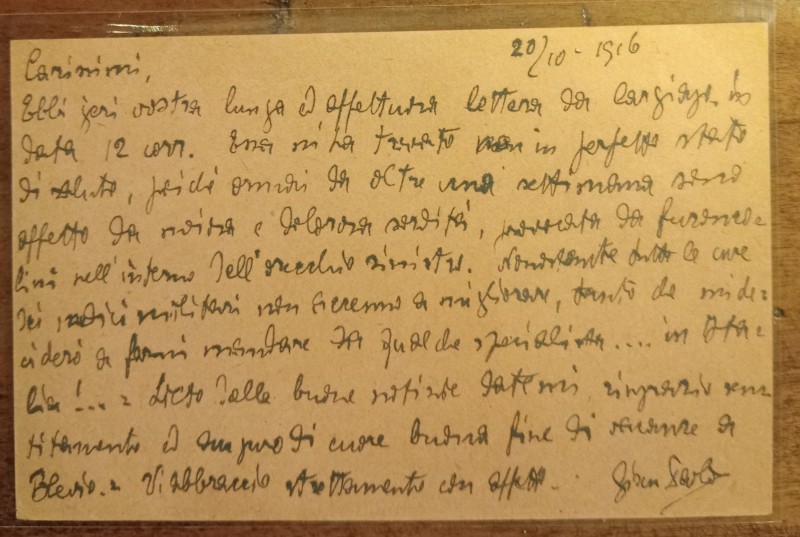 20/10-1916
Carissimi,
Ebbi jeri vostra lunga ed affettuosa lettera da in
data 12 corr. Essa mi ha trovato non in perfetto stato
di salute, poiché ormai da oltre una settimana sono
affetto da noiosa e dolorosa sordità, provocata da furunco=
lini nell'interno dell'orecchio sinistro. Nonostante tutte le cure
dei medici militari non accenno a migliorare, tanto che mi de=
ciderò a farmi mandare da qualche specialista.... in Ita=
lia!... = Lieto delle buone notizie datemi, ringrazio sen=
titamente ed auguro di cuore buona fine di vacanze a
Blevio. = Vi abbraccio strettamente con affetto. Gian Paolo